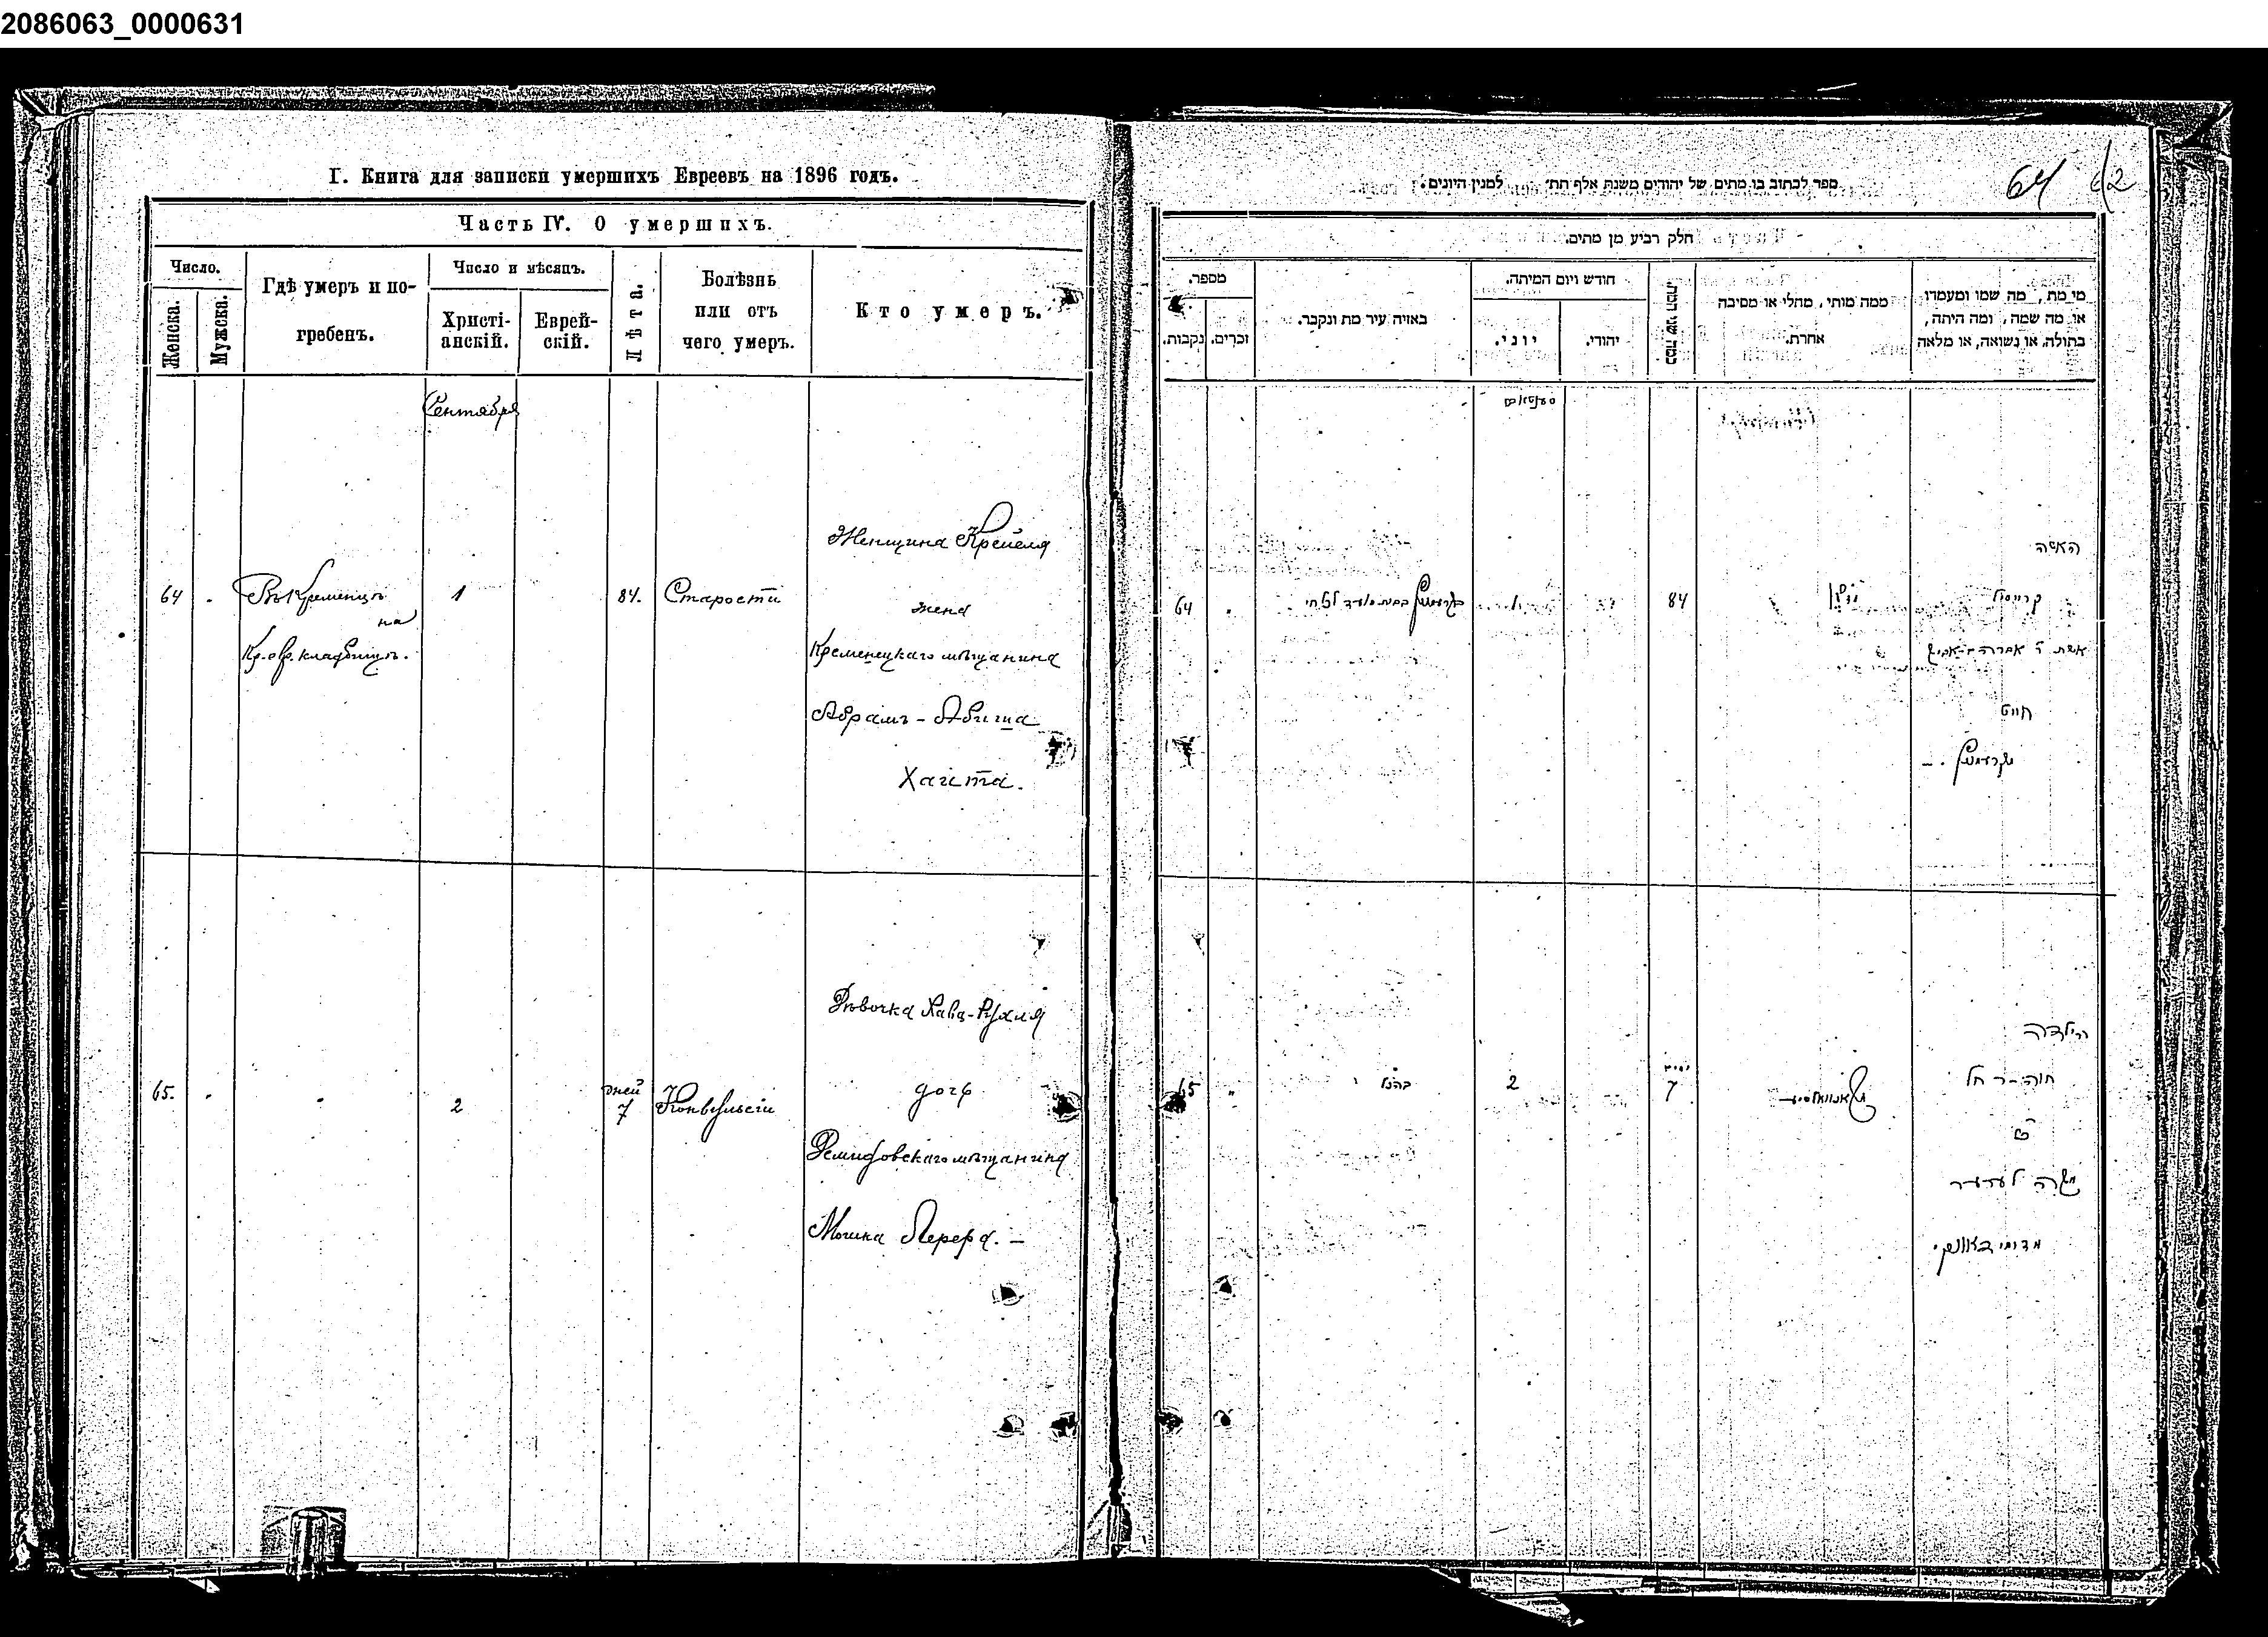 2086063_0000631
Г. Книга для записки умершихъ Евреевъ на 1896 годъ.
Часть IV. О умершихъ.
Число.
Женска.
Мужска.
Гдѣ умеръ и по-
гребенъ.
Число и мѣсяцъ.
Христі-
анскій.
Еврей-
скій.
Лѣта.
Болѣзнь
или отъ
чего умеръ.
Кто умеръ.
Сентября
64
Въ Кременцѣ
на
Кр. евр. кладбищѣ.
1
84.
Старости
Женщина Крейеля
жена
Кременецкаго мѣщанина
Абрамъ-Абиша
Хаита.
65.
2
дней
7
Конвульсіи
Дѣвочка Хава-Рухля
дочь
мѣщанина
Мошка Ледера. —
ספר לכתוב בו מתים של יהודים משנת אלף תת׳ למנין היונים.
64
62
חלק רביע מן מתים.
מספר.
נקבות.
זכרים.
באיזה עיר מת ונקבר.
חודש ויום המיתה.
יוני.
יהודי.
כמה שני המת.
ממה מותי, מחלי או מסיבה
אחרת.
מי מת, מה שמו ומעמדו
או מה שמה, ומה היתה,
בתולה, או נשואה, או מלאה
64
1
84
זקן
האשה
קרייסל
אשת ר׳
חייט
65
בהנל
2
ימים
7
הילדה
חוה
לעדער